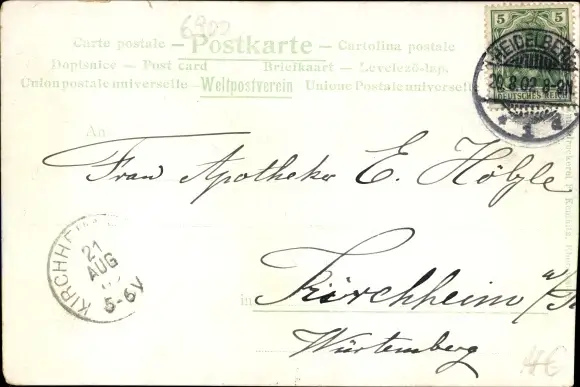 6900
Carte postale – Postkarte – Cartolina postale
Dopisnice – Post card Briefkaart – Levelező-lap.
Union postale universelle Weltpostverein Unione Postale universale
5 5
DEUTSCHES REICH
HEIDELBERG
20.8.02. 8-9N
* 1 d
An
Frau Apotheker E. Hölzle
KIRCHHE
21
AUG
5-6V
in Kirchheim u/T
Würtemberg
4€